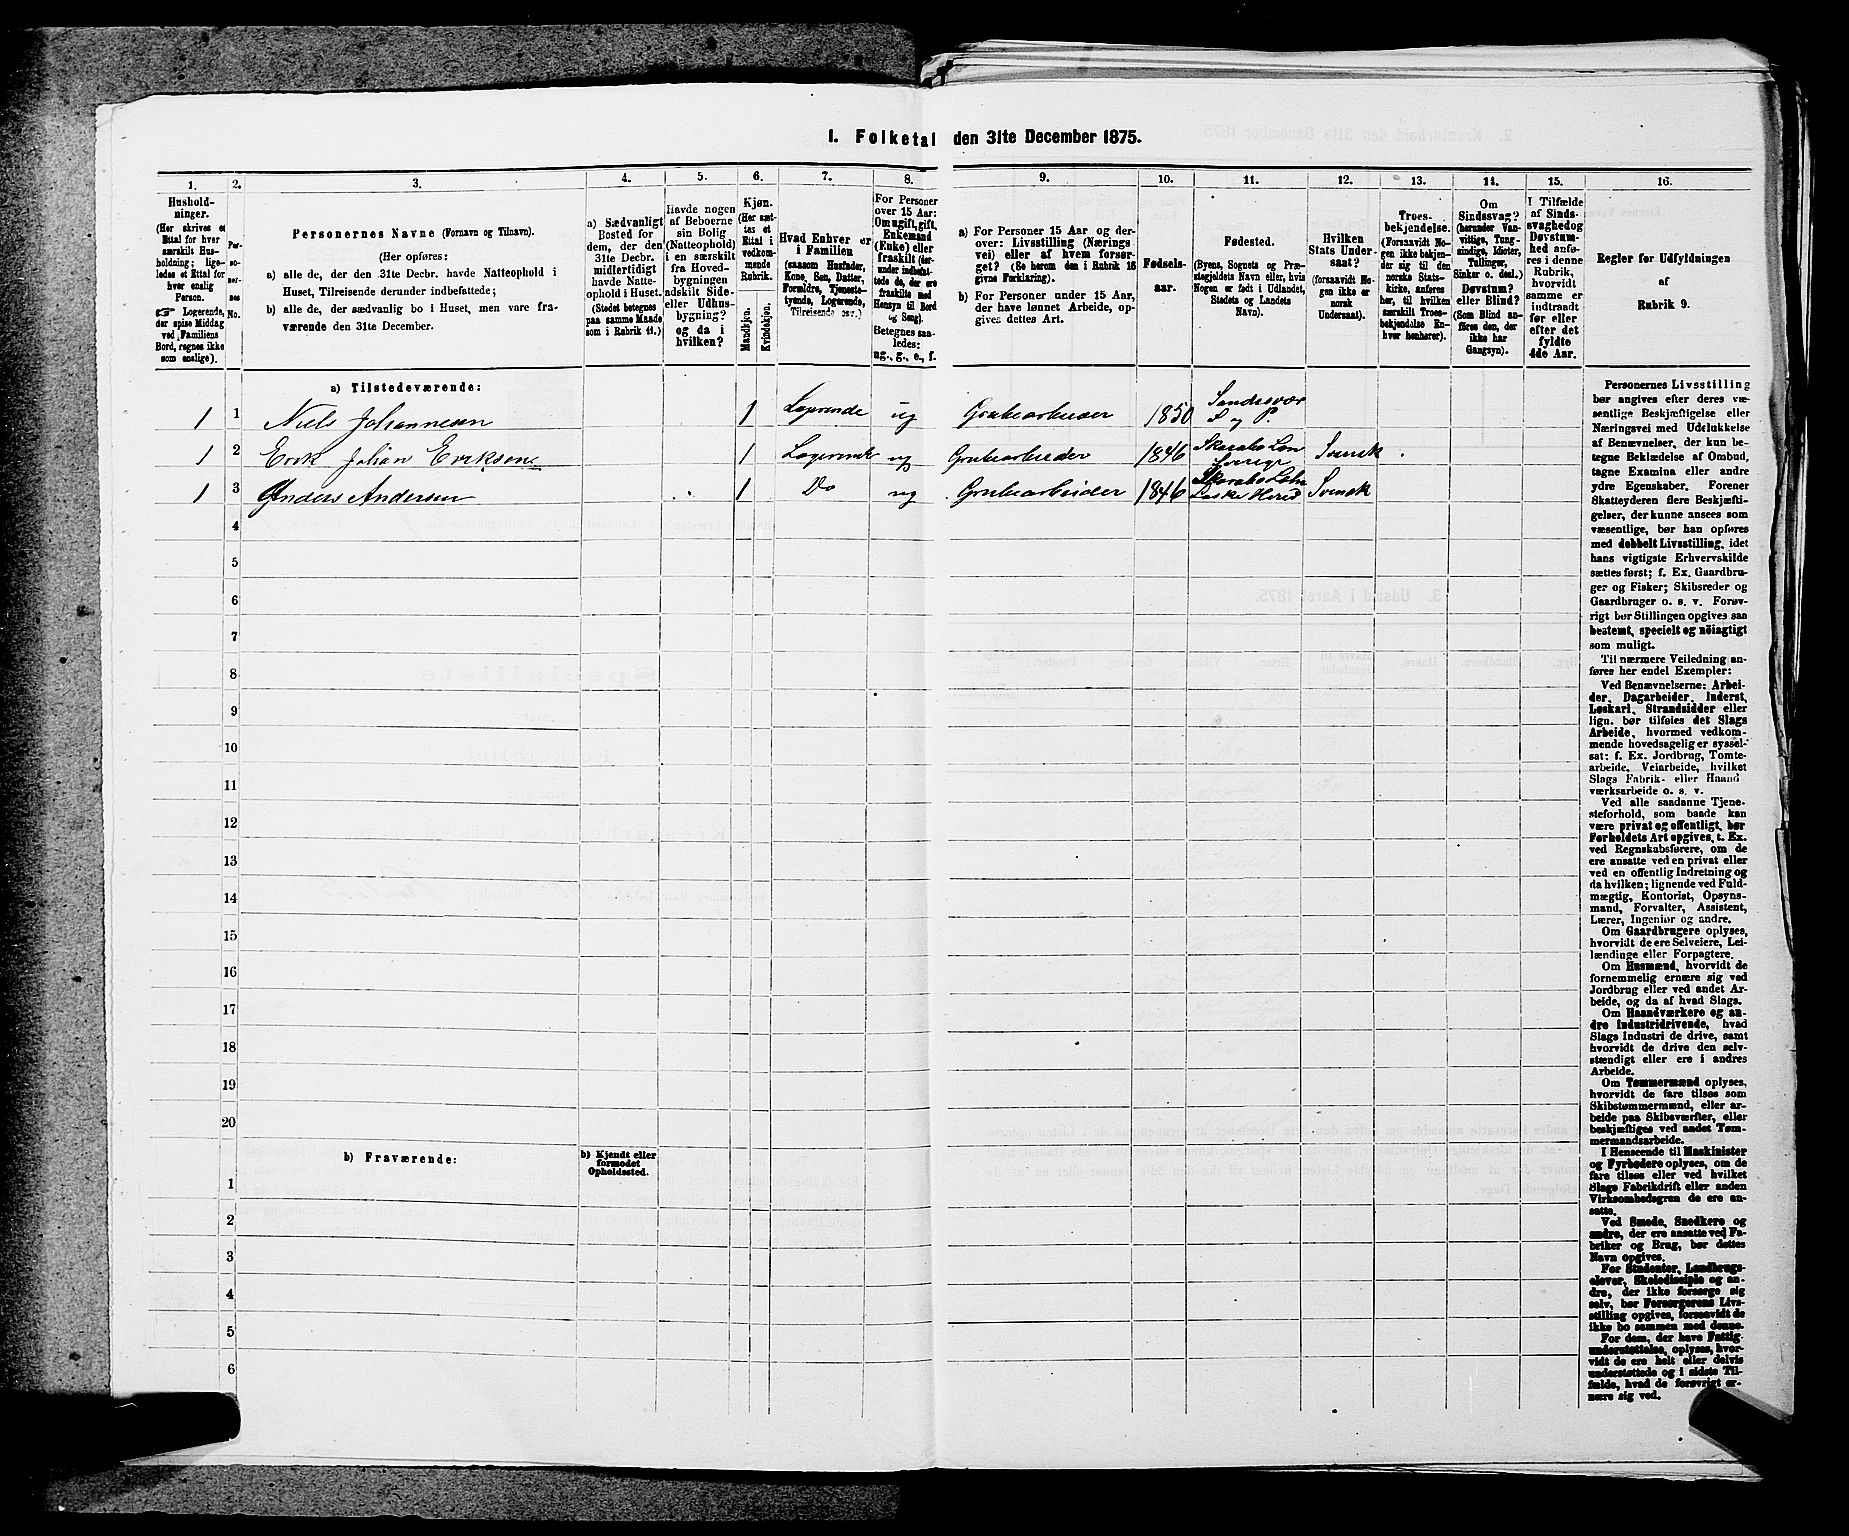 1. Folketal den 31te December 1875.
1.
Hushold-
ninger.
(Her skrives et
Ettal for hver
særskilt Hus-
holdning; lige-
ledes et Ettal for
hver enslig
Person.
☞ Logerende,
der spise Middag
ved Familiens
Bord, regnes ikke
som enslige).
2.
Per-
so-
ner-
nes
No.
3.
Personernes Navne (Fornavn og Tilnavn).
(Her opføres:
a) alle de, der den 31te Decbr. havde Natteophold i
Huset, Tilreisende derunder indbefattede;
b) alle de, der sædvanlig bo i Huset, men vare fra-
værende den 31te December.
4.
a) Sædvanligt
Bosted for
dem, der den
31te Decbr.
midlertidigt
havde Natte-
ophold i Huset.
(Stedet betegnes
paa samme Maade
som i Rubrik 11.)
5.
Havde nogen
af Beboerne
sin Bolig
(Natteophold)
i en særskilt
fra Hoved-
bygningen
adskilt Side-
eller Udhus-
bygning?
og da i
hvilken?
6.
Kjøn.
(Her sæt-
tes et
Ettal i
vedkom-
mende
Rubrik.
Mandkjøn.
Kvindekjøn.
7.
Hvad Enhver er
i Familien
(saasom Husfader,
Kone, Søn, Datter,
Forældre, Tjeneste-
tyende, Logerende,
Tilreisende osv.)
8.
For Personer
over 15 Aar:
Om ugift, gift,
Enkemand
(Enke) eller
fraskilt (der-
under indbefat-
tede de, der ere
fraskilte med
Hensyn til Bord
og Seng).
Betegnes saa-
ledes:
ug., g., e., f.
9.
a) For Personer 15 Aar og der-
over: Livsstilling (Nærings
vei) eller af hvem forsør-
get? (Se herom den i Rubrik 16
givne Forklaring).
b) For Personer under 15 Aar,
der have lønnet Arbeide, op-
gives dettes Art.
10.
Fødsels-
aar.
11.
Fødested.
(Byens, Sognets og Præ-
stegjeldets Navn eller, hvis
Nogen er født i Udlandet,
Stedets og Landets
Navn).
12.
Hvilken
Stats Under-
saat?
(forsaavidt No-
gen ikke er
norsk
Undersaat).
13.
Troes-
bekjendelse.
(Forsaavidt No-
gen ikke bekjen-
der sig til den
norske Stats-
kirke, anføres
her, til hvilken
særskilt Troes-
bekjendelse En-
hver henhører).
14.
Om
Sindssvag?
(herunder Van-
vittige, Tung-
sindige, Idioter,
Tullinger,
Sinker o. desl.)
Døvstum?
eller Blind?
(Som Blind an-
føres den, der
ikke har
Gangsyn).
15.
I Tilfælde
af Sinds-
svaghed og
Døvstum-
hed anfø-
res i denne
Rubrik,
hvorvidt
samme er
indtraadt
før eller
efter det
fyldte
4de Aar.
16.
Regler for Udfyldningen
af
Rubrik 9.
a) Tilstedeværende:
1 1 Niels Johannesen 1 Logerende ug Grubearbeider 1850 Sandesvær S og P.
1 2 Erik Johan Eriksen 1 Logerende ug Grubearbeider 1846 Skarabo Len Sverige Svensk
1 3 Anders Andersen 1 Do ug Grubearbeider 1846 Skarabo Lehn Laske Herid Svensk
4
5
6
7
8
9
10
11
12
13
14
15
16
17
18
19
20
b) Fraværende:
b) Kjendt eller
formodet
Opholdssted.
1
2
3
4
5
6
Personernes Livsstilling
bør angives efter deres væ-
sentlige Beskjæftigelse eller
Næringsvei med Udelukkelse
af Benævnelser, der kun be-
tegne Beklædelse af Ombud,
tagne Examina eller andre
ydre Egenskaber. Forener
Skatteyderen flere Beskjæfti-
gelser, der kunne ansees som
væsentlige, bør han opføres
med dobbelt Livsstilling, idet
hans vigtigste Erhvervskilde
sættes først; f. Ex. Gaardbru-
ger og Fisker; Skibsreder og
Gaardbruger o. s. v. Forøv-
rigt bør Stillingen opgives saa
bestemt, specielt og nöiagtigt
som muligt.
Til nærmere Veiledning an-
føres her endel Exempler:
Ved Benævnelserne: Arbei-
der, Dagarbeider, Inderst,
Løskarl, Strandsidder eller
lign. bør tilføies det Slags
Arbeide, hvormed vedkom-
mende hovedsagelig er syssel-
sat; f. Ex. Jordbrug, Tomte-
arbeide, Veiarbeide, hvilket
Slags Fabrik- eller Haand
værksarbeide o. s. v.
Ved alle saadanne Tjene-
steforhold, som baade kan
være privat og offentligt, bør
Forholdets Art opgives, t. Ex.
ved Regnskabsførere, om de
ere ansatte ved en privat eller
ved en offentlig Indretning og
da hvilken; lignende ved Fuld-
mægtig, Kontorist, Opsyns-
mand, Forvalter, Assistent,
Lærer, Ingeniør og andre.
Om Gaardbrugere oplyses,
hvorvidt de ere Selveiere, Lei-
lændinge eller Forpagtere.
Om Husmænd, hvorvidt de
fornemmelig ernære sig ved
Jordbrug eller ved andet Ar-
beide, og da af hvad Slags.
Om Haandværkere og an-
dre Industridrivende, hvad
Slags Industri de drive, samt
hvorvidt de drive den selv-
stændigt eller ere i andres
Arbeide.
Om Tømmermænd oplyses,
hvorvidt de fare tilsøs som
Skibstømmermænd, eller ar-
beide paa Skibsværfter, eller
beskjæftiges ved andet Tøm-
mermandsarbeide.
I Henseende til Maskinister
og Fyrbødere oplyses, om de
fare tilsøs eller ved hvilket
Slags Fabrikdrift eller anden
Virksombedsgren de ere an-
satte.
Ved Smede, Snedkere og
andre, der ere ansatte ved Fa-
briker og Brug, bør dettes
Navn opgives.
For Studenter, Landbrugs-
elever, Skoledisciple og an-
dre, der ikke forsørge sig
selv, bør Forsørgerens Livs-
stilling opgives, forsaavidt de
ikke bo sammen med denne.
For dem, der have Fattig-
understøttelse, oplyses, hvor-
vidt de ere helt eller delvis
understøttede og i sidste Til-
fælde, hvad de forøvrigt er-
nære sig ved.